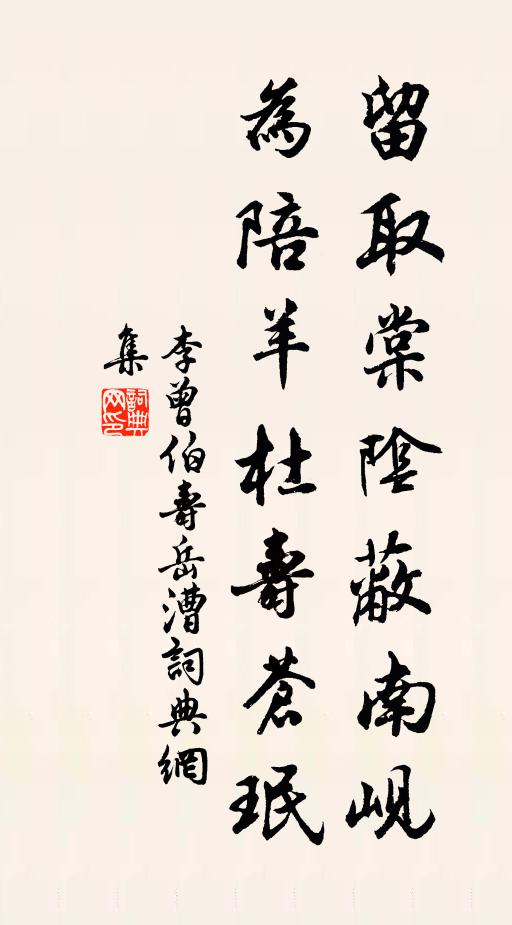 留取棠陰蔽南峴
為陪羊杜壽蒼珉
李曾伯壽岳漕詞典網
集
詞典网印